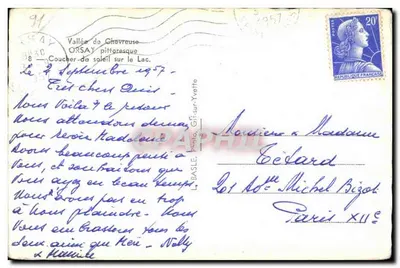 91
Vallée de Chevreuse
ORSAY pittoresque
8 - Coucher de soleil sur le Lac.
Le 2 Septembre 1957.
Très chers Amis -
Nous voilà le retour
Nous attendons
pour revoir Madelon
Avons beaucoup pensé à
Vous, et souhaitons que
Vous ayez eu beau temps.
Nous avons pas eu trop
à nous plaindre. Nous
Vous embrassons tous les
deux ainsi que - Nelly
x
L. BASLE, Gif-sur-Yvette
20F
REPUBLIQUE FRANÇAISE
Monsieur & Madame
Tétard
201 Michel Bizot
Paris XIIe